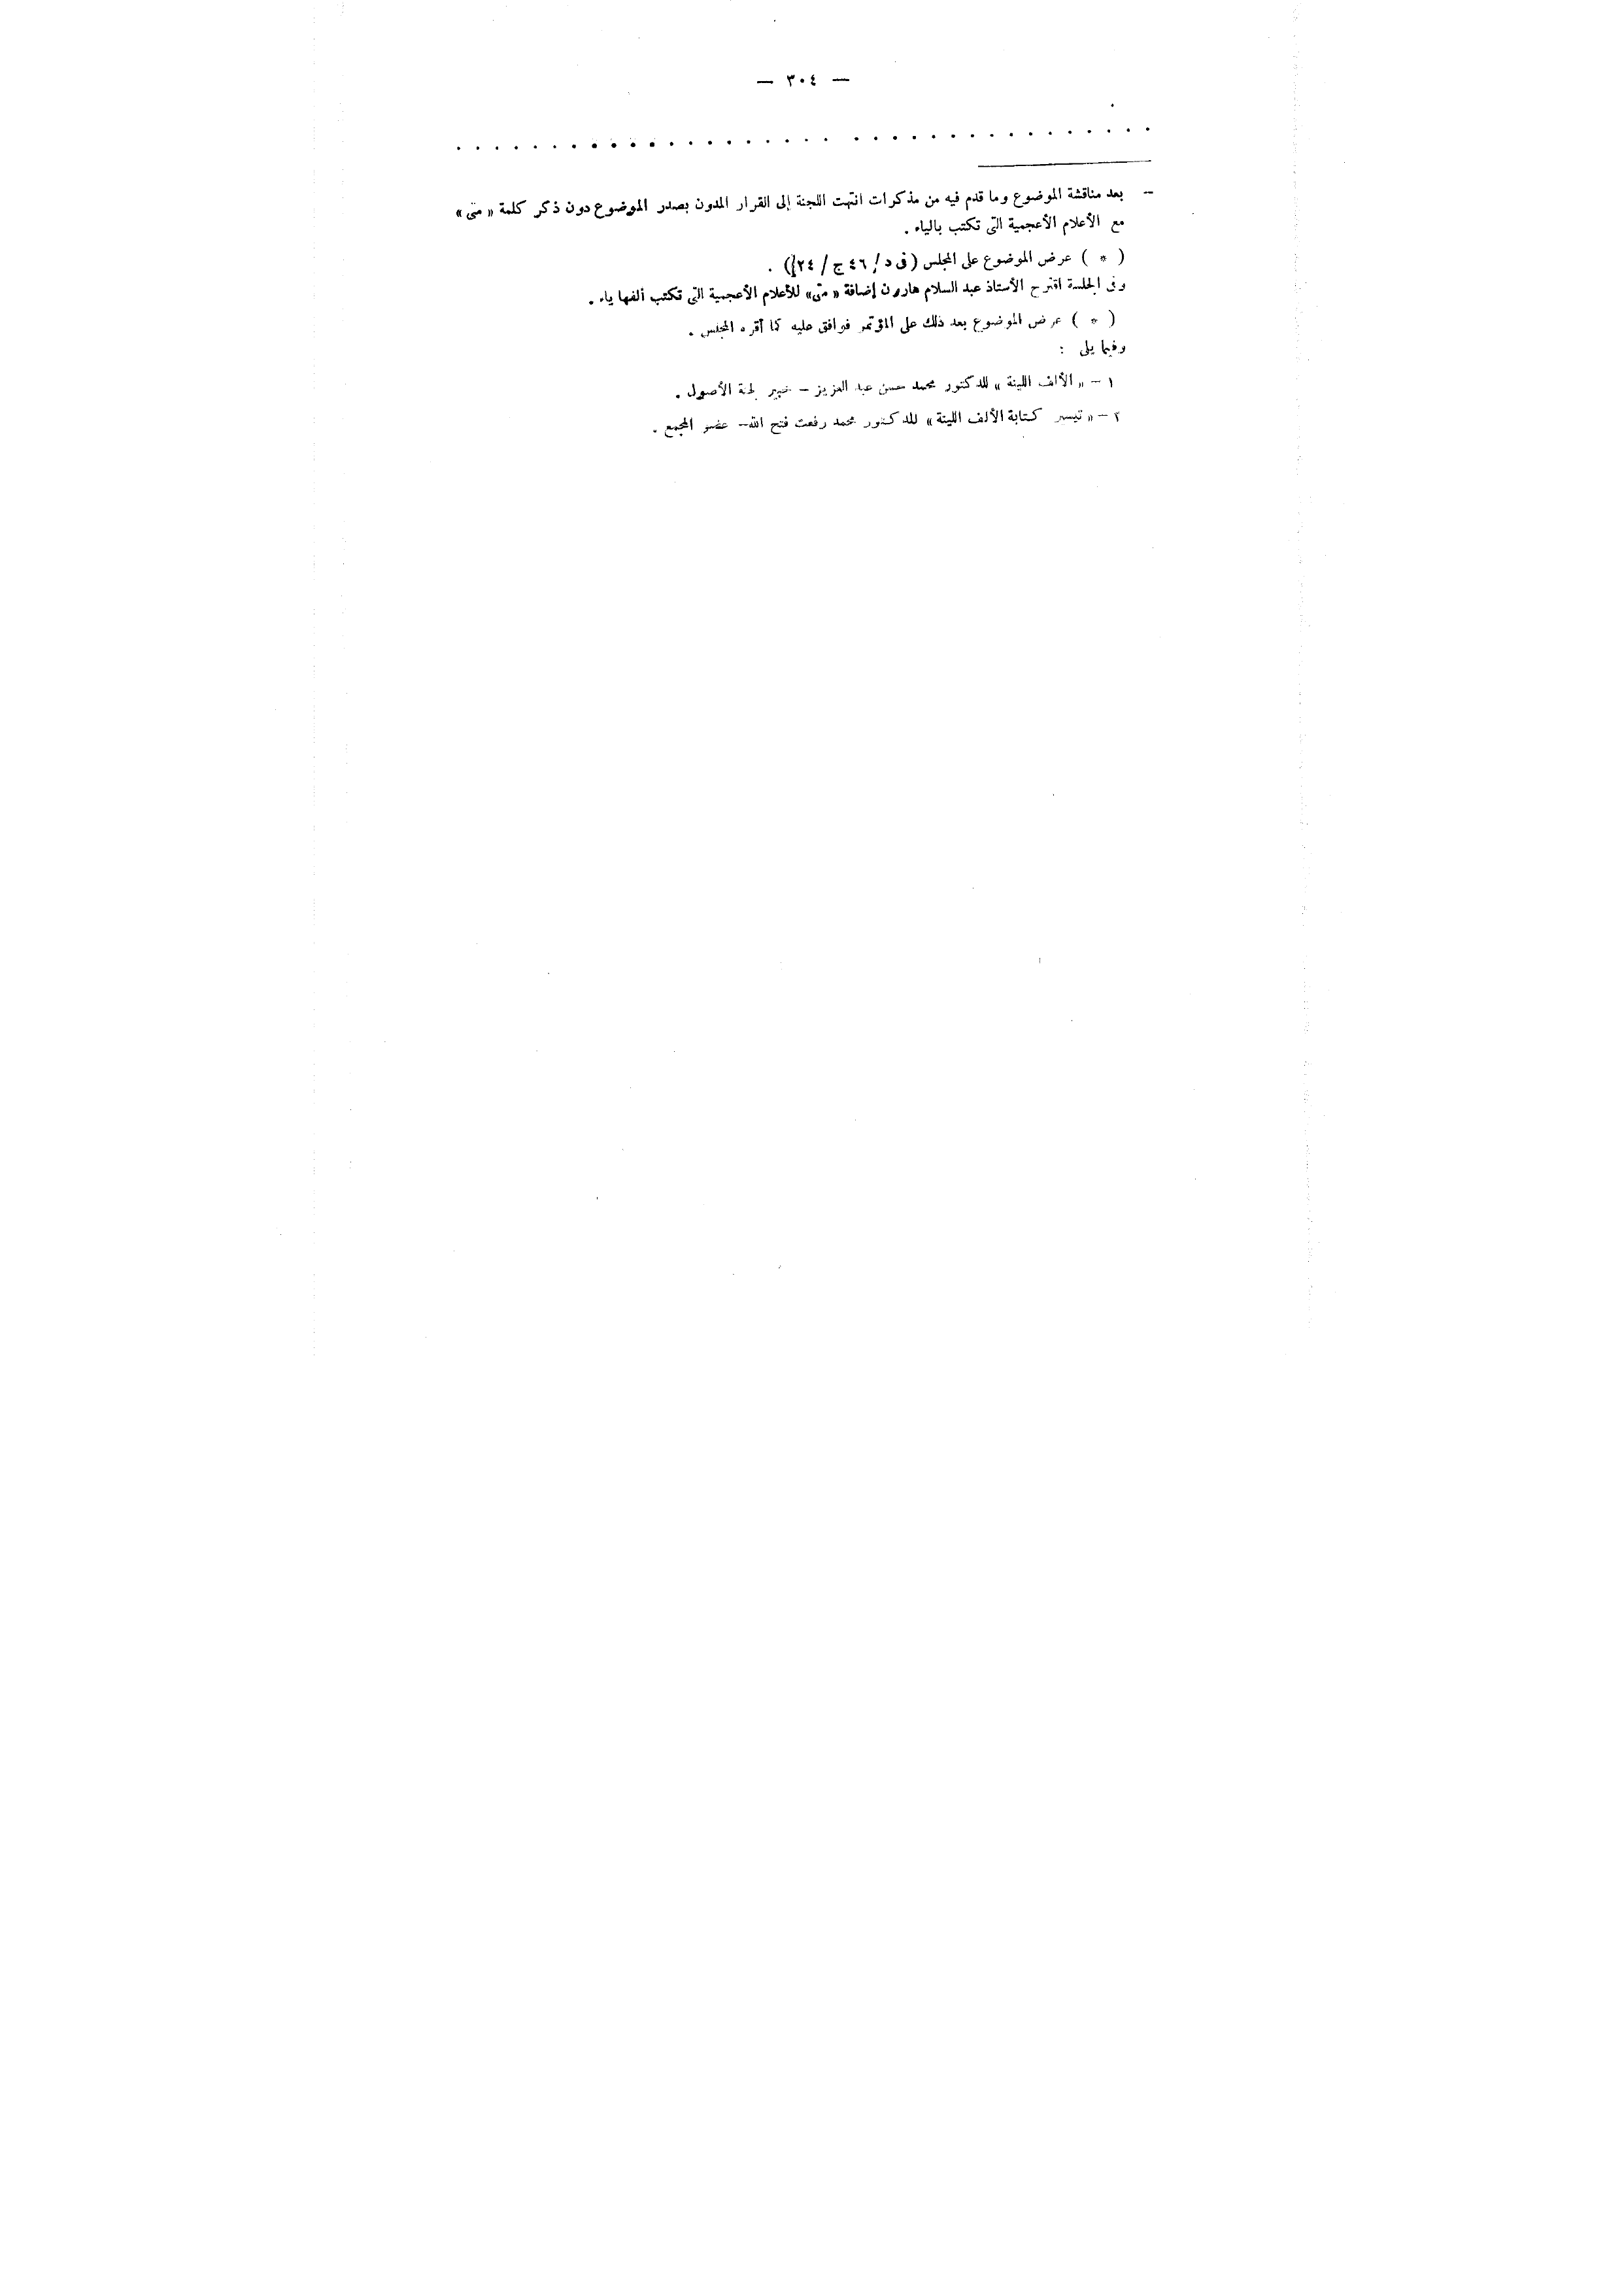 — ٣٠٤ —
. . . . . . . . . . . . . . . . . . . . . . . . . . . . . . . . . . . .
– بعد مناقشة الموضوع وما قدم فيه من مذكرات انتهت اللجنة إلى القرار المدون بصدر الموضوع دون ذكر كلمة « متى »
مع الأعلام الأعجمية التى تكتب بالياء .
( * ) عرض الموضوع على المجلس ( فى د / ٤٦ ج / ٢٤ ) .
وفى الجلسة اقترح الأستاذ عبد السلام هارون إضافة « متى » للأعلام الأعجمية التى تكتب ألفها ياء .
( * ) عرض الموضوع بعد ذلك على المؤتمر فوافق عليه كما أقره المجلس .
وفيما يلى :
١ – « الألف اللينة » للدكتور محمد حسن عبد العزيز – خبير لجنة الأصول .
٢ – « تيسير كتابة الألف اللينة » للدكتور محمد رفعت فتح الله – عضو المجمع .